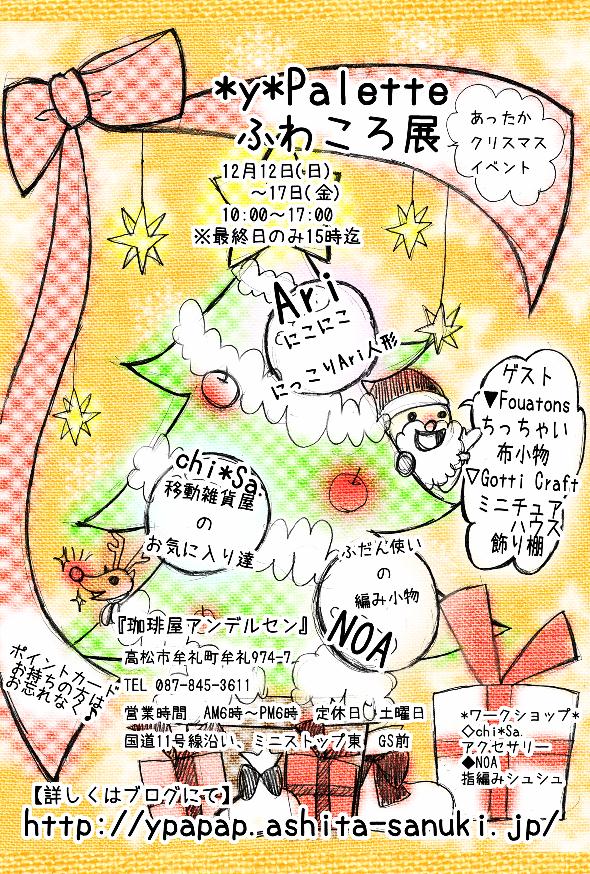 *y*Palette
ふわころ展
あったか
クリスマス
イベント
12月12日(日)
～17日(金)
10:00～17:00
※最終日のみ15時迄
Ari
にこにこ
にっこりAri人形
ゲスト
▼Fouatons
ちっちゃい
布小物
▽Gotti Craft
ミニチュア
ハウス
飾り棚
chi*Sa.
移動雑貨屋
の
お気に入り達
ふだん使い
の
編み小物
NOA
『珈琲屋アンデルセン』
高松市牟礼町牟礼974-7
TEL 087-845-3611
営業時間 AM6時～PM6時 定休日 土曜日
国道11号線沿い、ミニストップ東 GS前
ポイントカード
お持ちの方は
お忘れなく♪
*ワークショップ*
◇chi*Sa.
アクセサリー
◆NOA
指編みシュシュ
【詳しくはブログにて】
http://ypapap.ashita-sanuki.jp/